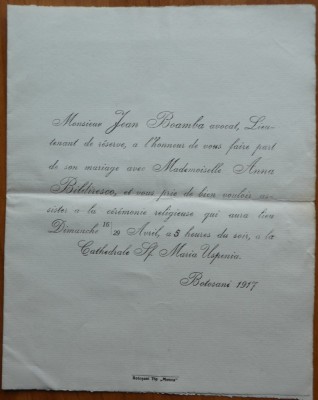 Monsieur Jean Boamba avocat, Lieu-
tenant de réserve, a l'honneur de vous faire part
de son mariage avec Mademoiselle Anna
et vous prie de bien vouloir as-
sister a la cérémonie religieuse qui aura lieu
Dimanche 16/29 Avril, a 5 heures du soir, a la
Cathedrale Sf. Maria Uspenia.
Botosani 1917